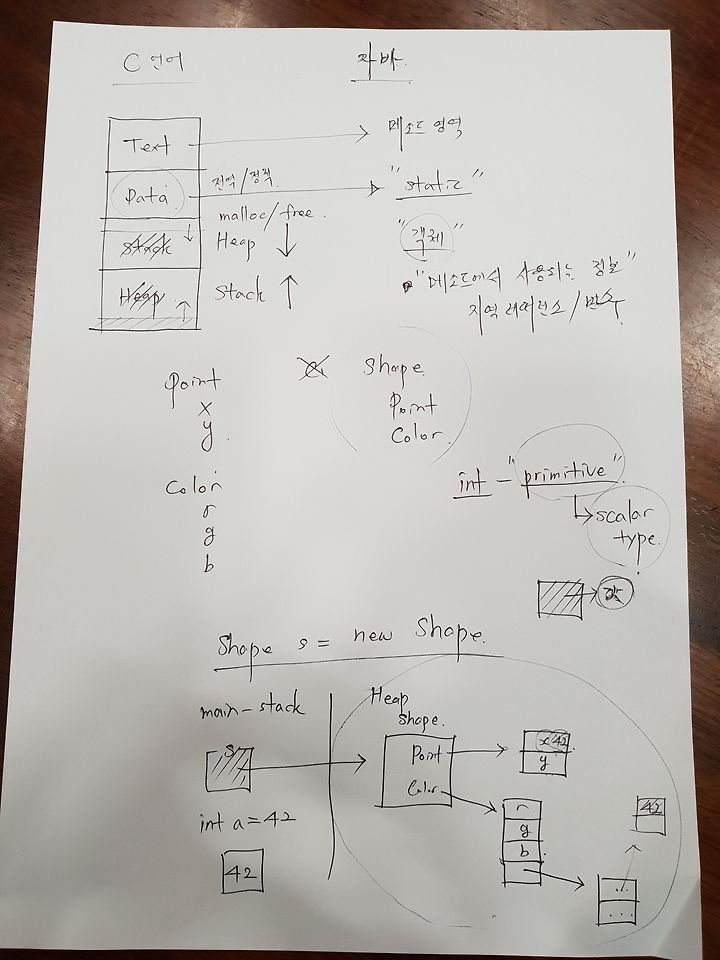 C 언어
자바
Text
메소드 영역
Data
전역/정적
"static"
malloc/free.
Stack
Heap
"객체"
Heap
Stack
"메소드에서 사용되는 정보"
지역 레퍼런스/변수
Point
x
y
Shape
Point
Color
Color
r
g
b
int - "primitive"
scalar
type.
값
Shape s = new Shape.
main-stack
Heap
Shape.
s
Point
Color
x 42
y
int a = 42
42
r
g
b
42
...
...